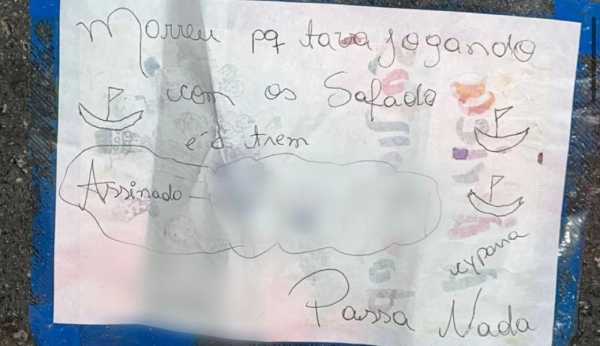 Morreu pq tava jogando
com os Safado
é o trem
Assinado -
cypana
Passa Nada